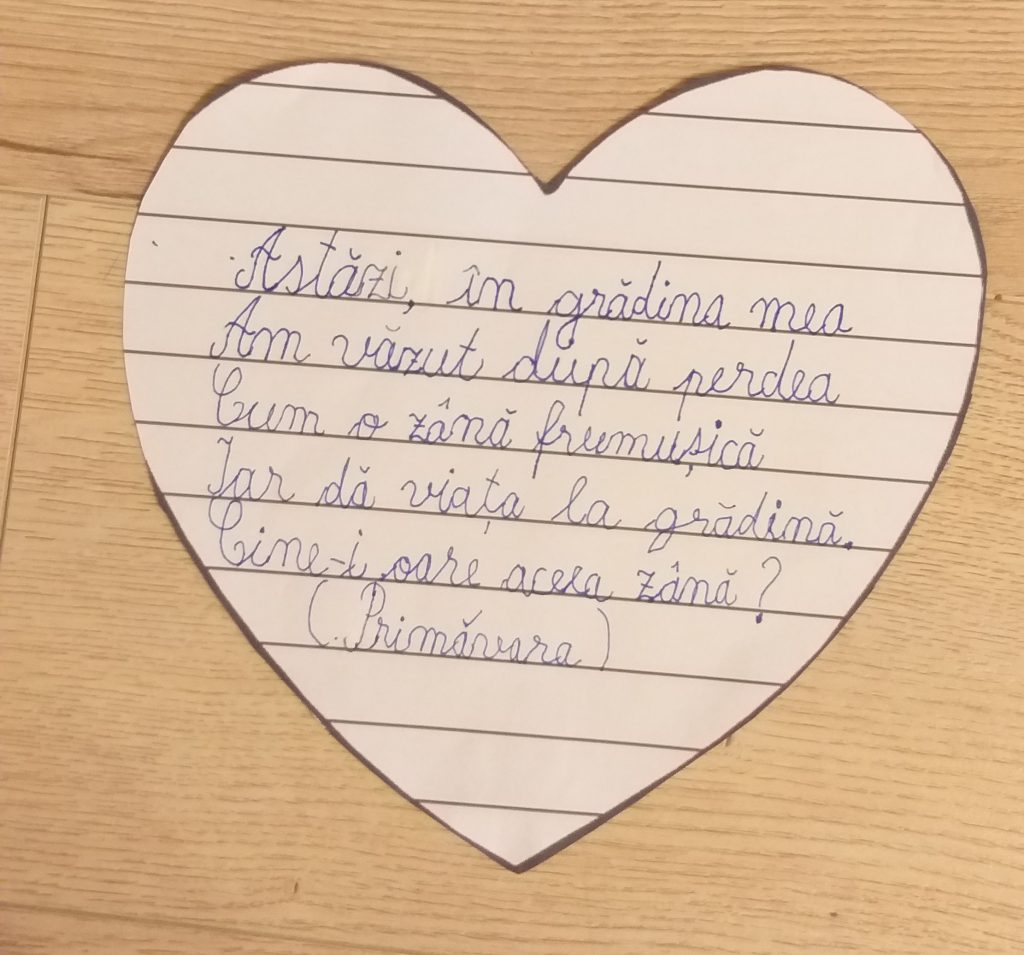 Astăzi, în grădina mea
Am văzut după perdea
Cum o zână frumușică
Iar dă viața la grădină.
Cine-i oare aceea zână?
(Primăvara)